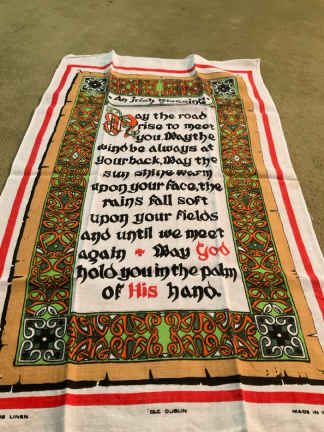 An Irish Blessing
May the road
rise to meet
you. May the
wind be always at
your back, May the
sun shine warm
upon your face, the
rains fall soft
upon your fields
and until we meet
again + May God
hold you in the palm
of His hand.
LINEN
GLC DUBLIN
MADE IN